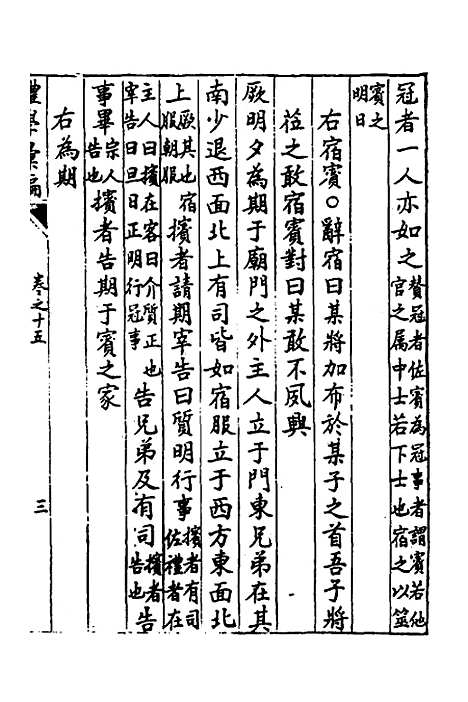 冠者一人亦如之贊冠者佐賓為冠事者謂賓若他官之属中士若下士也宿之以筮
賓之明日
右宿賓○辭宿曰某將加布於某子之首吾子將
莅之敢宿賓對曰某敢不夙興
厥明夕為期于廟門之外主人立于門東兄弟在其
南少退西面北上有司皆如宿服立于西方東面北
上厥其也宿服朝服擯者請期宰告曰質明行事擯者有司佐禮者在
主人曰擯在客曰介質正也宰告曰旦日正明行冠事告兄弟及有司擯者告也告
事畢宗人告也擯者告期于賓之家
右為期
禮學彙編
卷之十五
三